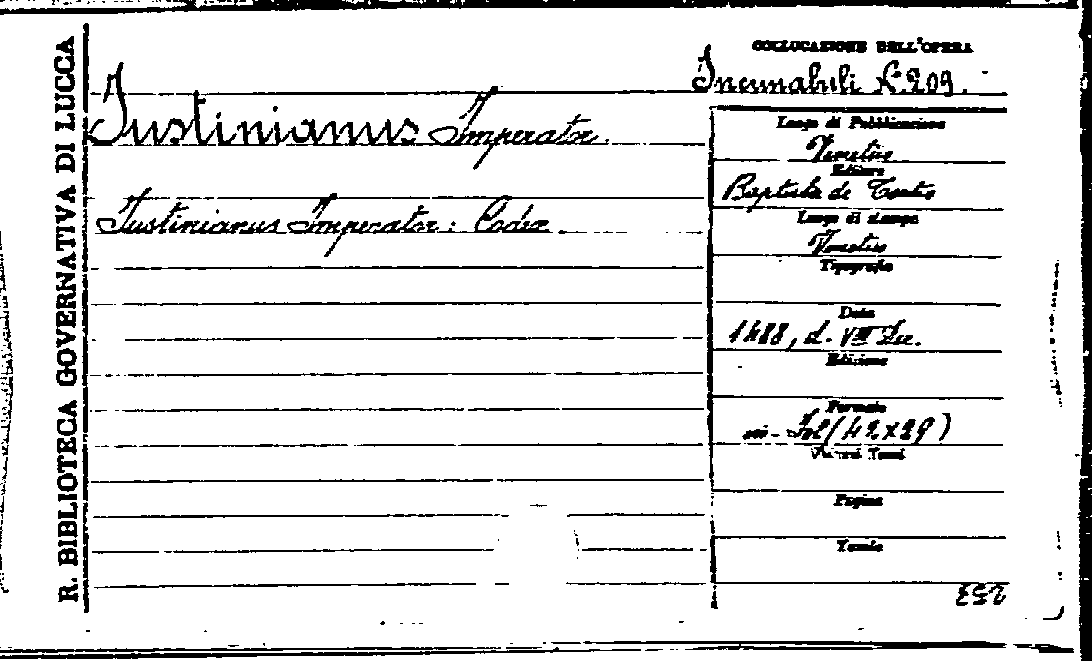 R. BIBLIOTECA GOVERNATIVA DI LUCCA
COLLOCAZIONE DELL'OPERA
Incunabuli N. 209.
Justinianus Imperator.
Justinianus Imperator: Codex.
Luogo di Pubblicazione
Venetiis
Editore
Baptista de Tortis
Luogo di stampa
Venetiis
Tipografo
Data
1488, d. VIII
Edizione
Formato
in-Fol (42X29)
Vol. o Tomi
Pagine
Tomie
253